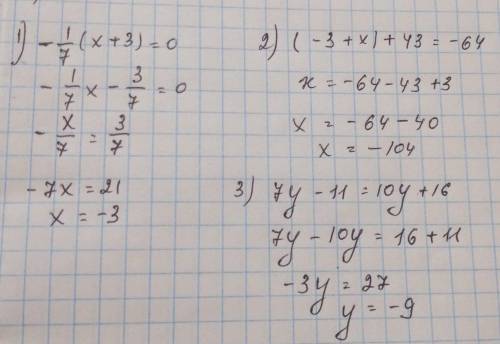 1) -1/7 (x+3) = 0
-1/7 x - 3/7 = 0
-x/7 = 3/7
-7x = 21
x = -3
2) (-3+x)+43 = -64
x = -64-43+3
x = -64-40
x = -104
3) 7y-11 = 10y+16
7y-10y = 16+11
-3y = 27
y = -9